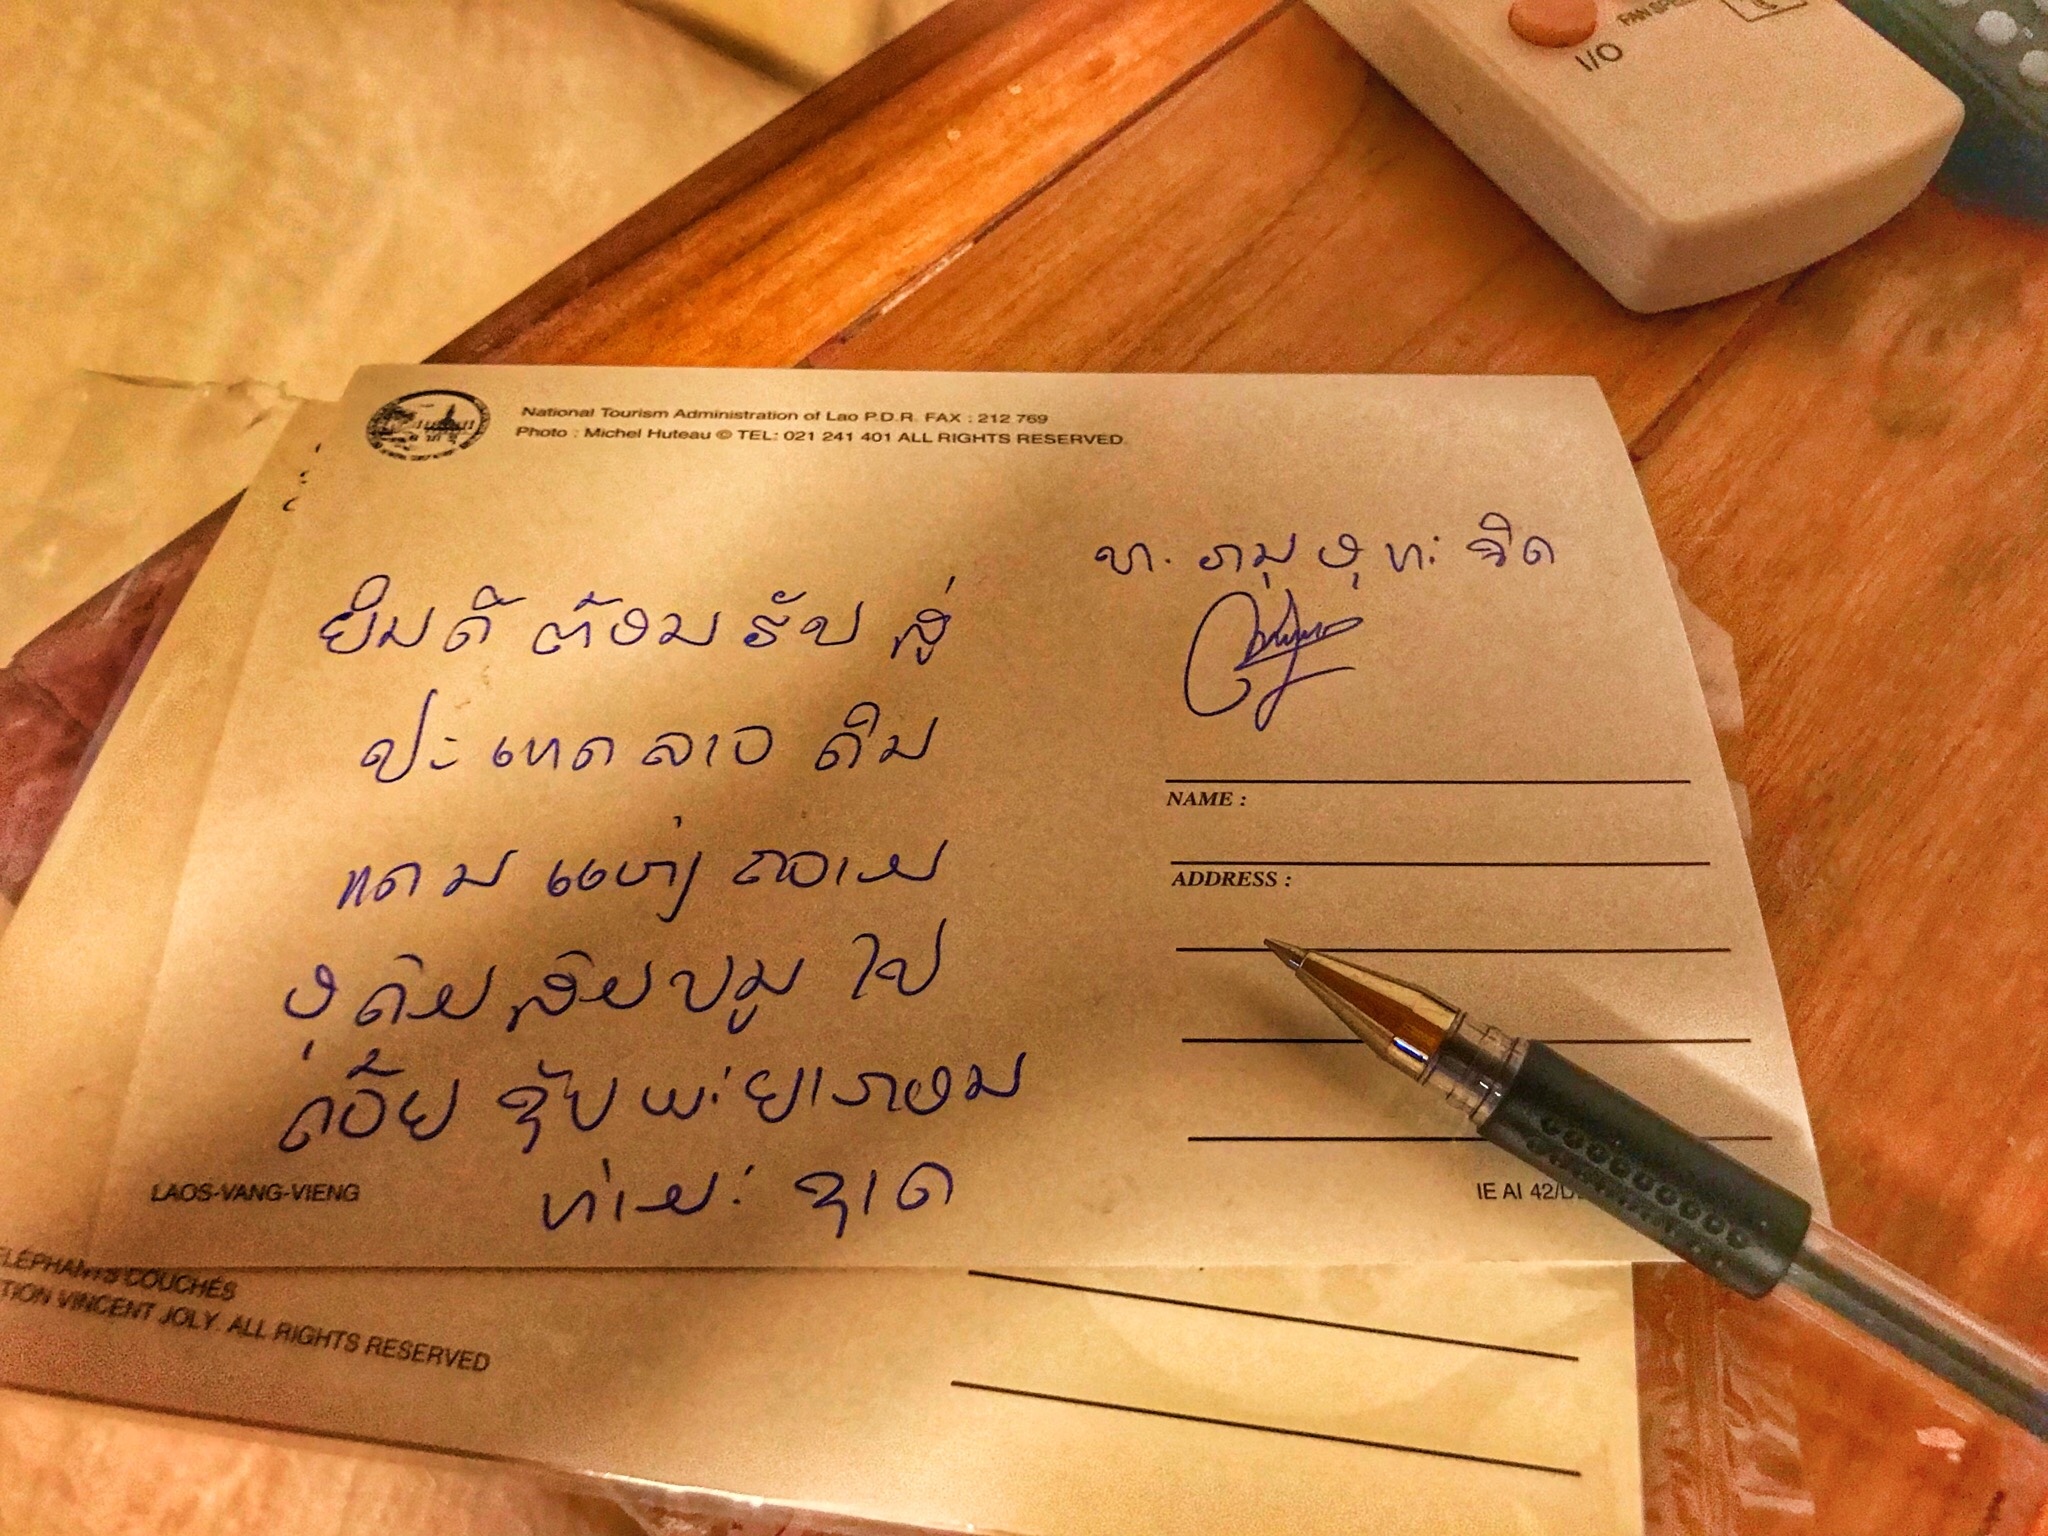 National Tourism Administration of Lao P.D.R. FAX : 212 769
Photo : Michel Huteau © TEL: 021 241 401 ALL RIGHTS RESERVED
ຍິນດີ ຕ້ອນ ຮັບ ສູ່
ປະ ເທດ ລາວ ດິນ
ແດນ ແຫ່ງ
ໄປ
ດ້ວຍ ຊັບ ພະ ຍາກອນ
ທຳມະ ຊາດ
NAME :
ADDRESS :
LAOS-VANG-VIENG
IE AI 42/
ELEPHANTS COUCHÉS
VINCENT JOLY. ALL RIGHTS RESERVED
I/O